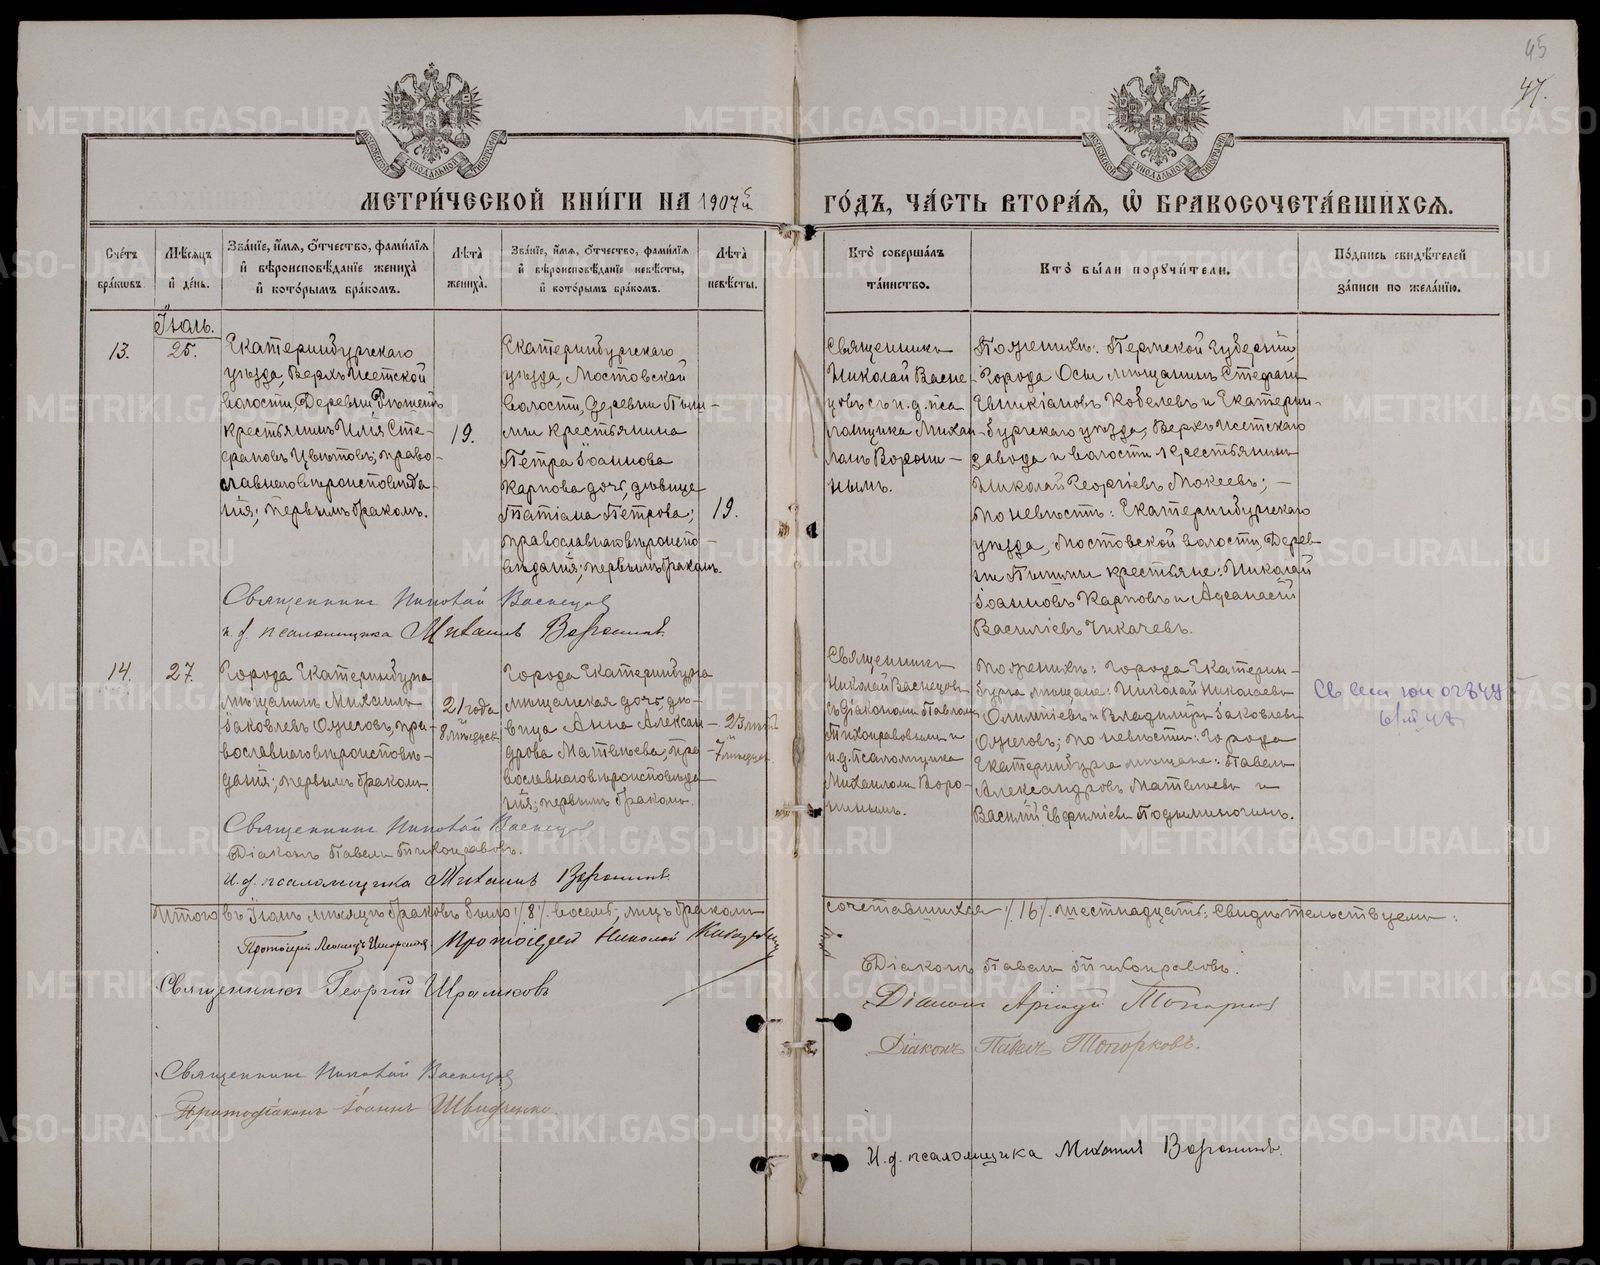 45
47.
МЕТРИ́ЧЕСКОЙ КНИ́ГИ НА 1907й
ГО́ДЪ, ЧА́СТЬ ВТОРА́Я, Ѽ БРАКОСОЧЕТА́ВШИХСЯ.
Сче́тъ бра́кѡвъ.
Мѣ́сяцъ и҆ де́нь.
Зва́нїе, и҆́мя, ѻ҆́тчество, фами́лїя и҆ вѣроисповѣ́данїе жениха̀ и҆ кото́рымъ бра́комъ.
Лѣ́та жениха̀.
Зва́нїе, и҆́мя, ѻ҆́тчество, фами́лїя и҆ вѣроисповѣ́данїе невѣ́сты, и҆ кото́рымъ бра́комъ.
Лѣ́та невѣ́сты.
Кто̀ соверша́лъ та́инство.
Кто̀ бы́ли поручи́тели.
По́дпись свидѣ́телей за́писи по жела́нїю.
Іюль.
13.
25.
Екатеринбургскаго
уѣзда, Верхъ-Исетской
волости, Деревни
крестьянинъ Илія Сте-
фановъ Цвѣтовъ, право-
славнаго вѣроисповѣда-
нія; первымъ бракомъ.
19.
Екатеринбургскаго
уѣзда, Мостовской
волости, деревни Пыш-
мы крестьянина
Петра Іоаннова
Карпова дочь, дѣвица
Татіана Петрова;
православнаго вѣроиспо-
вѣданія; первымъ бракомъ.
19.
Священникъ
Николай Васне-
цовъ съ и. д. пса
ломщика Михаи
ломъ Ворони-
нымъ.
По женихѣ: Пермской губерніи,
Города Осы мѣщанинъ Стефанъ
Кобелевъ и Екатерин-
бургскаго уѣзда, Верхъ-Исетскаго
завода и волости крестьянинъ
Николай Георгіевъ Мокеевъ; —
по невѣстѣ: Екатеринбургскаго
уѣзда, Мостовской волости, Дерев-
ни Пышмы крестьяне: Николай
Іоанновъ Карповъ и Аѳанасій
Василіевъ Чикачевъ.
Священникъ Николай Васнецовъ
и. д. псаломщика Михаилъ Воронинъ.
14.
27.
Города Екатеринбурга
мѣщанинъ Михаилъ
Іаковлевъ Ожеговъ, пра-
вославнаго вѣроисповѣ-
данія; первымъ бракомъ.
21 года
8 мѣсяц.
Города Екатеринбурга
мѣщанская дочь, дѣ-
вица Анна Алексан-
дрова Матвѣева, пра-
вославнаго вѣроисповѣда-
нія; первымъ бракомъ.
23 лѣтъ
7 мѣсяц.
Священникъ
Николай Васнецовъ
съ діакономъ Павломъ
Тихонравовымъ и
и. д. псаломщика
Михаиломъ Воро-
нинымъ.
По женихѣ: города Екатерин-
бурга мѣщане: Николай Николаевъ
Олимпіевъ и Владиміръ Іаковлевъ
Ожеговъ; по невѣстѣ: города
Екатеринбурга мѣщане: Павелъ
Александровъ Матвѣевъ и
Василій Евфиміевъ
Священникъ Николай Васнецовъ
Діаконъ Павелъ Тихонравовъ.
И. д. псаломщика Михаилъ Воронинъ.
Итого въ Іюлѣ мѣсяцѣ браковъ было /8/ восемь, лицъ бракомъ
сочетавшихся /16/ шестнадцать; свидѣтельствуемъ:
Протоіерей Николай
Священникъ Георгій
Священникъ Николай Васнецовъ
Протодіаконъ Іоаннъ Швидченко.
Діаконъ Павелъ Тихонравовъ.
Діаконъ
Діаконъ Павелъ Топорковъ.
И. д. псаломщика Михаилъ Воронинъ.
METRIKI.GASO-URAL.RU